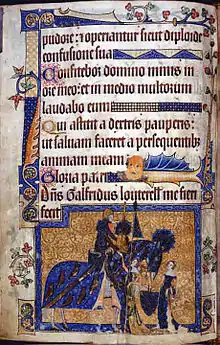 pudore: ⁊ operiantur sicut diploide
confusione sua
Confitebor domino nimis in
ore meo: et in medio multorum
laudabo eum
Qui astitit a dextris pauperis:
ut saluam faceret a persequentib;
animam meam
Gloria patri
Dñs Galfridus louterell me fieri
fecit